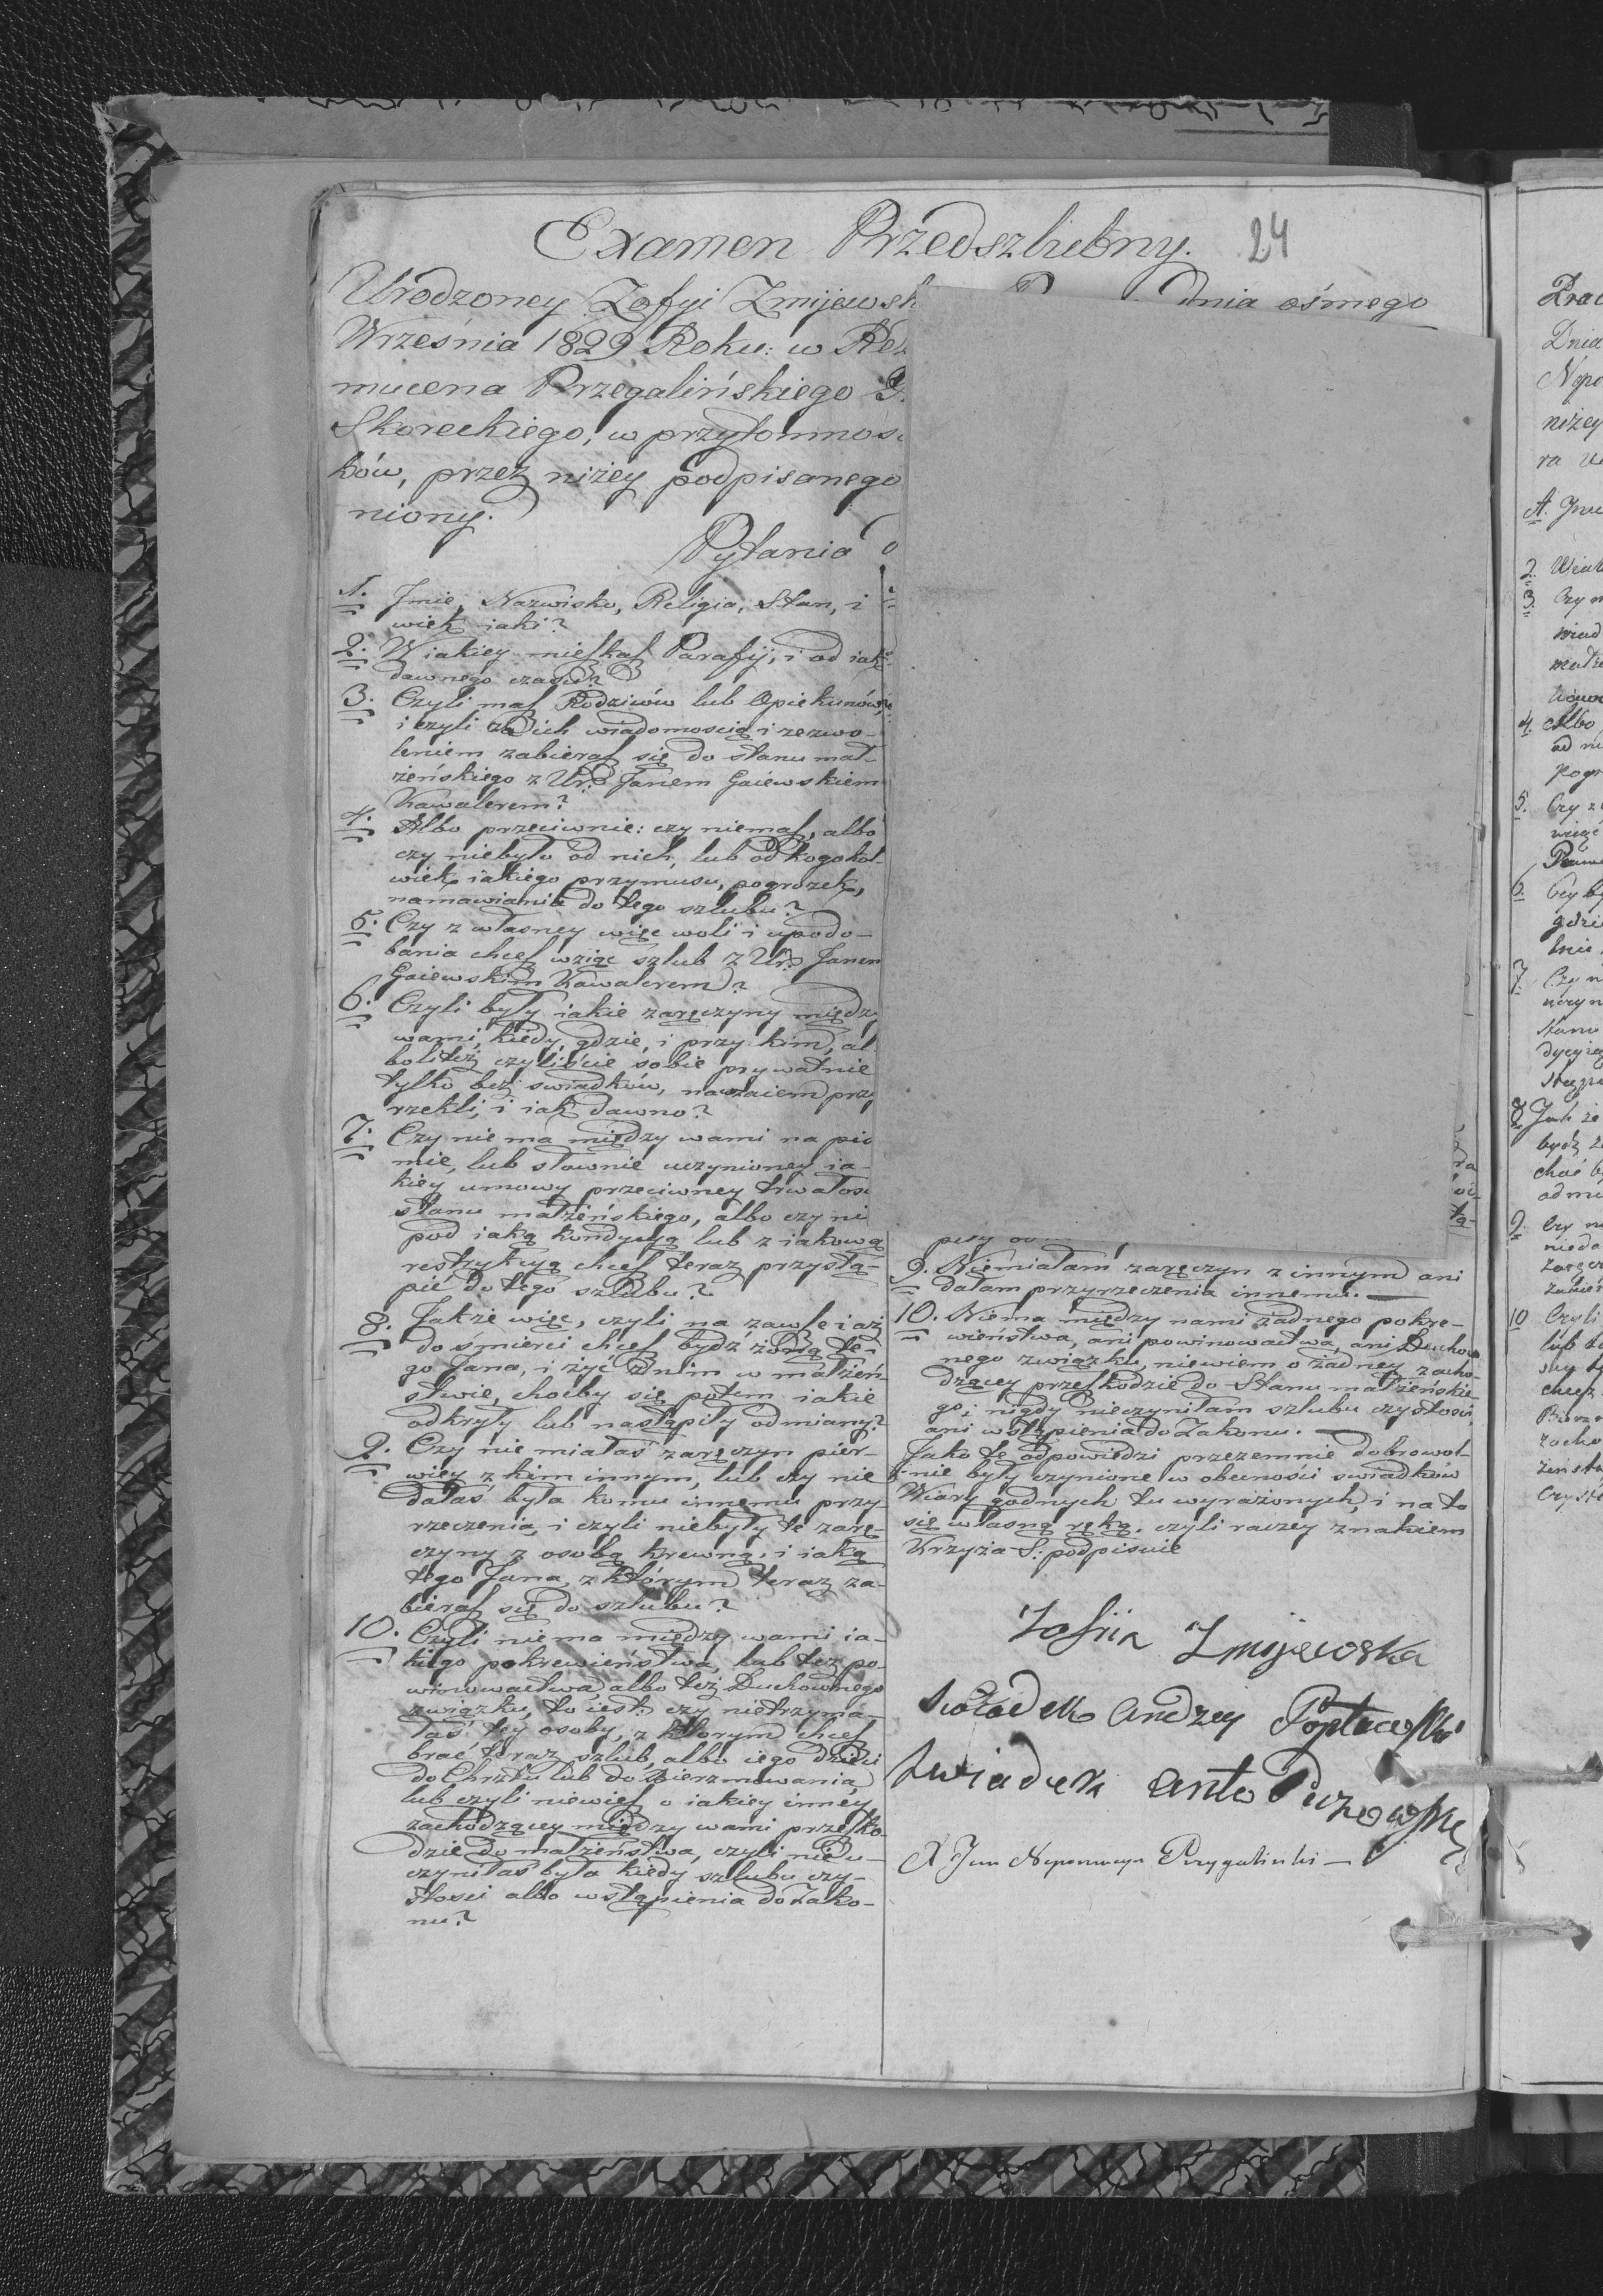 Examen Przedszlubny. 24
Urodzoney Zofyi Zmijewsk dnia ośmego
Września 1829 Roku: w
mucena Przegalińskiego
Skoreckiego, w przytomnoś
ków, przez niżey podpisanego
niony.
Pytania
1. Jmie, Nazwisko, Religia, Stan, i
wiek iaki?
2. W iakiey mieszkasz Parafij, i od iak
dawnego czasu?
3. Czyli masz Rodziców lub Opiekunów,
i czyli za ich wiadomością i zezwo-
leniem zabierasz się do stanu mał-
żeńskiego z Ur: Janem Gaiewskiem
Kawalerem?
4. Albo przeciwnie: czy niemasz, albo
czy niebyło od nich, lub od kogokol-
wiek iakiego przymusu, pogrozek,
namawiania do tego szlubu?
5. Czy z własney więc woli i upodo-
bania chcesz wziąć szlub z Ur: Janem
Gaiewskim Kawalerem?
6. Czyli były iakie zaręczyny między
wami, kiedy, gdzie, i przy kim, al-
bo też czyliście sobie prywatnie
tylko bez swiadków, nawzaiem przy
rzekli, i iak dawno?
7. Czy nie ma między wami na piś
mie, lub słownie uczynioney ia-
kiey umowy przeciwney trwałoś
stanu małżeńskiego, albo czy ni
pod iaką kondycyą lub z iakową
restrykcyą chcesz teraz przystą-
pić do tego szlubu?
8. Jakże więc, czyli na zawsze i aż
do śmierci chcesz bydź żoną te-
go Jana, i żyć z nim w małżeń-
stwie, choćby się potem iakie
odkryły lub nastąpiły odmiany?
9. Czy nie miałaś zaręczyn pier-
wiey z kim innym, lub czy nie
dałaś była komu innemu przy-
rzeczenia, i czyli niebyły te zarę-
czyny z osobą krewną, i iaką
tego Jana, z którym teraz za-
bierasz się do szlubu?
10. Czyli niema między wami ia-
kiego pokrewieństwa, lub też po-
winowactwa, albo też Duchownego
związku, to iest: czy nietrzyma-
łaś tey osoby, z którym chcesz
brać teraz szlub, albo iego dzieci
do Chrztu lub do Bierzmowania,
lub czyli niewiesz o iakiey inney
zachodzącey między wami przeszko-
dzie do małżeństwa, czyli nieu-
czyniłaś była kiedy szlubu czy-
stości albo wstąpienia do Zako-
nu?
9. Niemiałam zaręczyn z innym ani
dałam przyrzeczenia innemu. —
10. Niema między nami żadnego pokre-
wieństwa, ani powinowactwa, ani Duchow
nego związku, niewiem o żadney zacho-
dzącey przeszkodzie do Stanu małżeńskie-
go i nigdy nieczyniłam szlubu czystości,
ani wstąpienia do Zakonu. —
Jako te odpowiedzi przezemnie dobrowol-
nie były czynione w obecności swiadków
Wiary godnych tu wyrażonych, i na to
się własną ręką, czyli raczey znakiem
Krzyża S: podpisuie
Zofiia Zmijewska
Andrzey
Swiadek Anto
X Jan Nepomucyn Przygaliński —